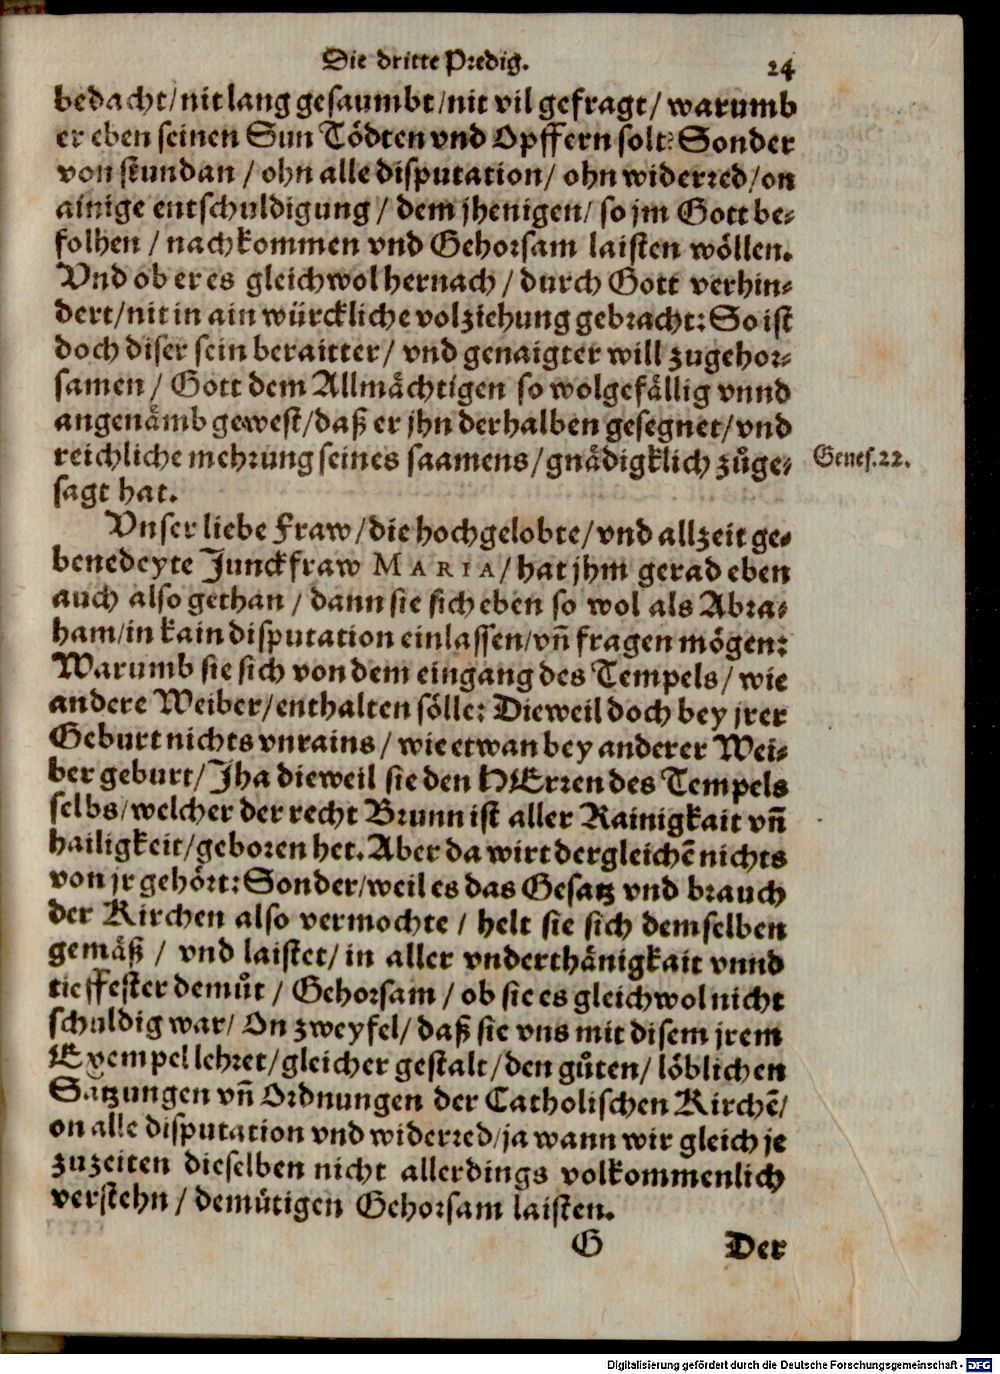 Die dritte Predig. 24
bedacht/nit lang gesaumbt/nit vil gefragt/ warumb
er eben seinen Sun Tödten vnd Opffern solt: Sonder
von stundan / ohn alle disputation/ ohn widerred/on
ainige entschuldigung / dem jhenigen/ so jm Gott be-
folhen / nachkommen vnd Gehorsam laisten wöllen.
Vnd ob er es gleichwol hernach / durch Gott verhin-
dert/nit in ain würckliche volziehung gebracht: So ist
doch diser sein beraitter/ vnd genaigter will zugehor-
samen / Gott dem Allmächtigen so wolgefällig vnnd
angenämb gewest/daß er jhn derhalben gesegnet/vnd
reichliche mehrung seines saamens/gnädigklich zůge-
Genes.22.
sagt hat.
Vnser liebe Fraw/die hochgelobte/vnd allzeit ge-
benedeyte Junckfraw MARIA/hat jhm gerad eben
auch also gethan / dann sie sich eben so wol als Abra-
ham/in kain disputation einlassen/vñ fragen mögen:
Warumb sie sich von dem eingang des Tempels/ wie
andere Weiber/enthalten sölle: Dieweil doch bey jrer
Geburt nichts vnrains/ wie etwan bey anderer Wei-
ber geburt/Jha dieweil sie den HErren des Tempels
selbs/welcher der recht Brunn ist aller Rainigkait vñ
hailigkeit/geboren het. Aber da wirt dergleichẽ nichts
von jr gehört: Sonder/weil es das Gesatz vnd brauch
der Kirchen also vermochte / helt sie sich demselben
gemäß / vnd laistet/in aller vnderthänigkait vnnd
tieffester demůt / Gehorsam / ob sie es gleichwol nicht
schuldig war/ On zweyfel/ daß sie vns mit disem jrem
Exempel lehret/gleicher gestalt/den gůten/ löblichen
Satzungen vñ Ordnungen der Catholischen Kirchẽ/
on alle disputation vnd widerred/ja wann wir gleich je
zuzeiten dieselben nicht allerdings volkommenlich
verstehn / demůtigen Gehorsam laisten.
G Der
Digitalisierung gefördert durch die Deutsche Forschungsgemeinschaft - DFG